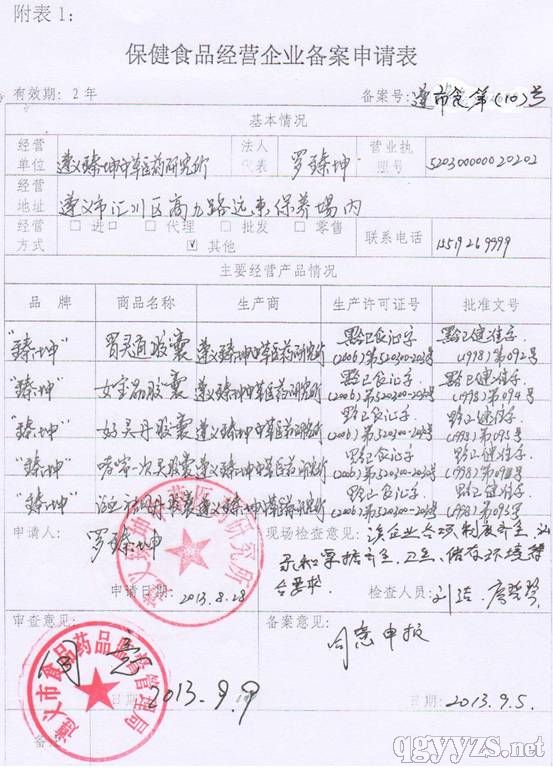 附表1:
保健食品经营企业备案申请表
有效期: 2 年 备案号: 遵市食第(10)号
基本情况
经营单位 遵义臻坤中草医药研究所 法人代表 罗臻坤 营业执照号 520300000020202
经营地址 遵义市汇川区高九路远东保养场内
经营方式 □ 进口 □ 代理 □ 批发 □ 零售 ☑ 其他 联系电话
主要经营产品情况
品 牌 商品名称 生产商 生产许可证号 批准文号
"臻坤" 胃灵通胶囊 遵义臻坤中草医药研究所 黔卫食证字(2006)第520300-202号 黔卫健准字(1998)第092号
"臻坤" 胶囊 遵义臻坤中草医药研究所 黔卫食证字(2006)第520300-202号 黔卫健准字(1998)第094号
"臻坤" 胶囊 遵义臻坤中草医药研究所 黔卫食证字(2006)第520300-202号 黔卫健准字(1998)第
"臻坤" 胶囊 遵义臻坤中草医药研究所 黔卫食证字(2006)第520300-202号 黔卫健准字(1998)第
"臻坤" 胶囊 遵义臻坤中草医药研究所 黔卫食证字(2006)第520300-202号 黔卫健准字(1998)第
申请人: 罗臻坤
申请日期: 2013.8.28
遵义臻坤中草医药研究所
现场检查意见: 该企业各项制度齐全,
齐全,卫生、储存环境符
合要求
检查人员:
审查意见: 同意
日期: 2013.9.9
遵义市食品药品监督管理局
备案意见:
同意申报
日期: 2013.9.5.
备
qgyyzs.net